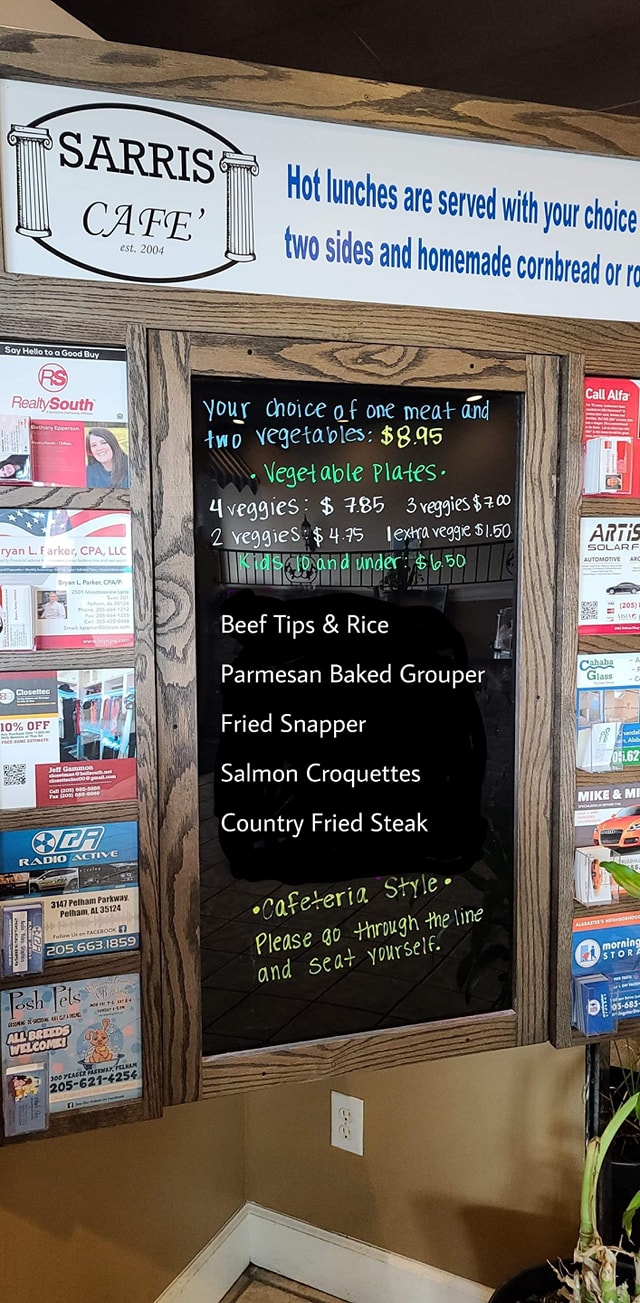 SARRIS
CAFE'
est. 2004
Hot lunches are served with your choice
two sides and homemade cornbread or ro
your choice of one meat and
two vegetables: $8.95
• Vegetable Plates •
4 veggies: $ 7.85 3 veggies $7.00
2 veggies: $4.75 1 extra veggie $1.50
Kids 10 and under: $6.50
Beef Tips & Rice
Parmesan Baked Grouper
Fried Snapper
Salmon Croquettes
Country Fried Steak
•Cafeteria Style•
Please go through the line
and seat yourself.
Say Hello to a Good Buy
RS
RealtySouth
Bethany Epperson
ryan L. Parker, CPA, LLC
Bryan L. Parker, CPA/P
Closettec
10% OFF
FREE HOME ESTIMATE
Jeff Gammon
RADIO ACTIVE
3147 Pelham Parkway,
Pelham, AL 35124
Follow Us on FACEBOOK
205.663.1859
Posh Pets
ALL BREEDS
WELCOME!
300 YEAGER PARKWAY, PELHAM
205-621-4254
Call Alfa
ARTIS
SOLAR F
AUTOMOTIVE ARC
(205)
VISA
Cahaba
Glass
MIKE & MI
morning
STORA